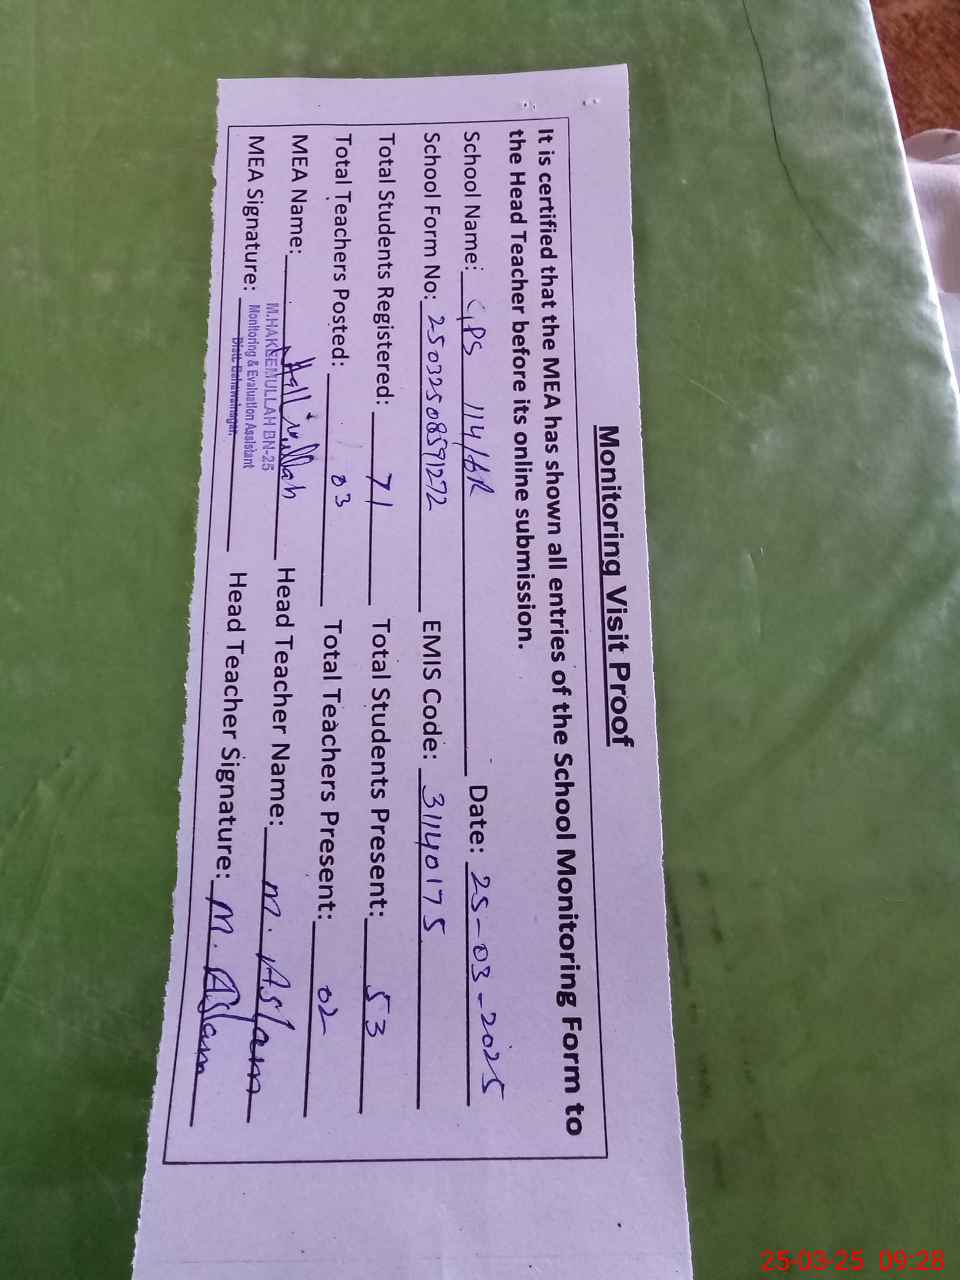 Monitoring Visit Proof
It is certified that the MEA has shown all entries of the School Monitoring Form to
the Head Teacher before its online submission.
School Name: GPS 114/6R Date: 25-03-2025
School Form No: 25032508591272 EMIS Code: 31140175
Total Students Registered: 71 Total Students Present: 53
Total Teachers Posted: 03 Total Teachers Present: 02
MEA Name: Head Teacher Name: M. Aslam
M.HAKEEMULLAH BN-25
MEA Signature: Head Teacher Signature: M. Aslam
Monitoring & Evaluation Assistant
Distt. Bahawalnagar.
25-03-25 09:28